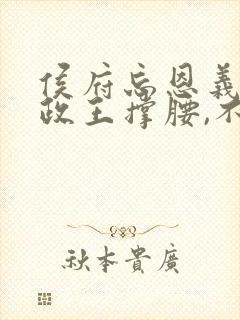 侯府忘恩義
政王撐腰,不
秋本貴廣